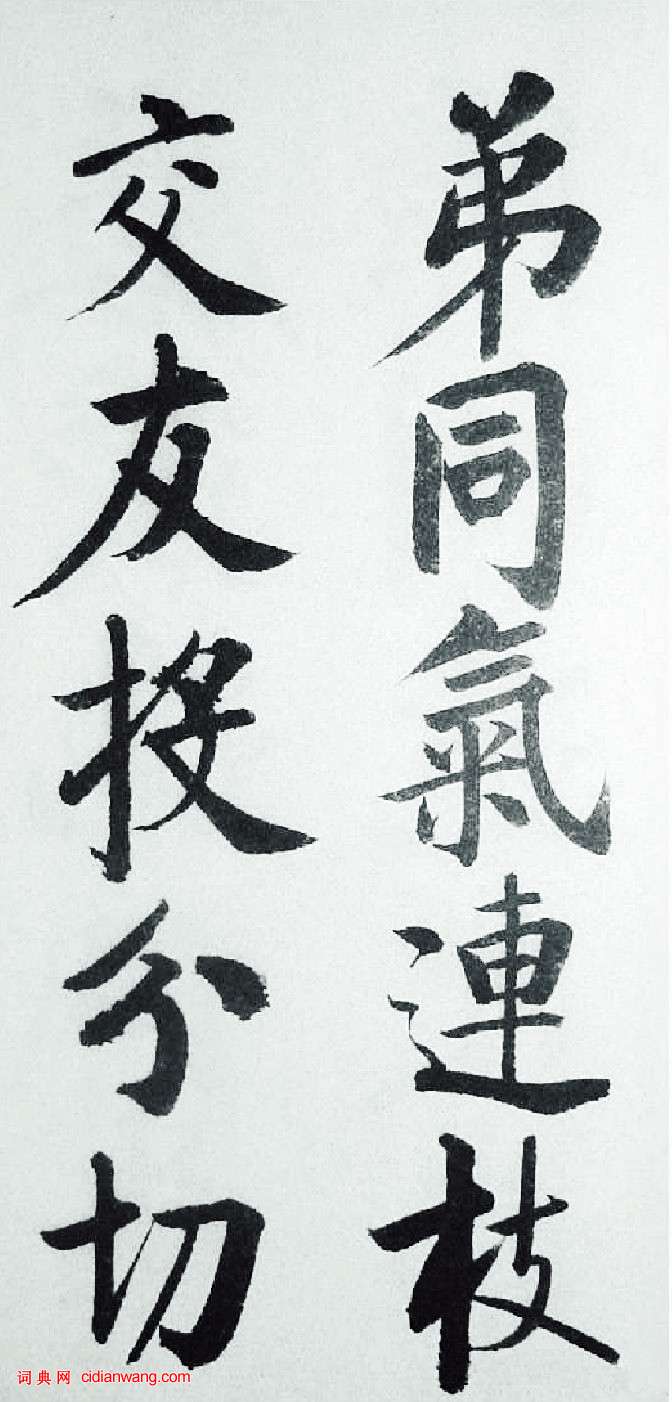 弟同氣連枝
交友投分切
词典网 cidianwang.com